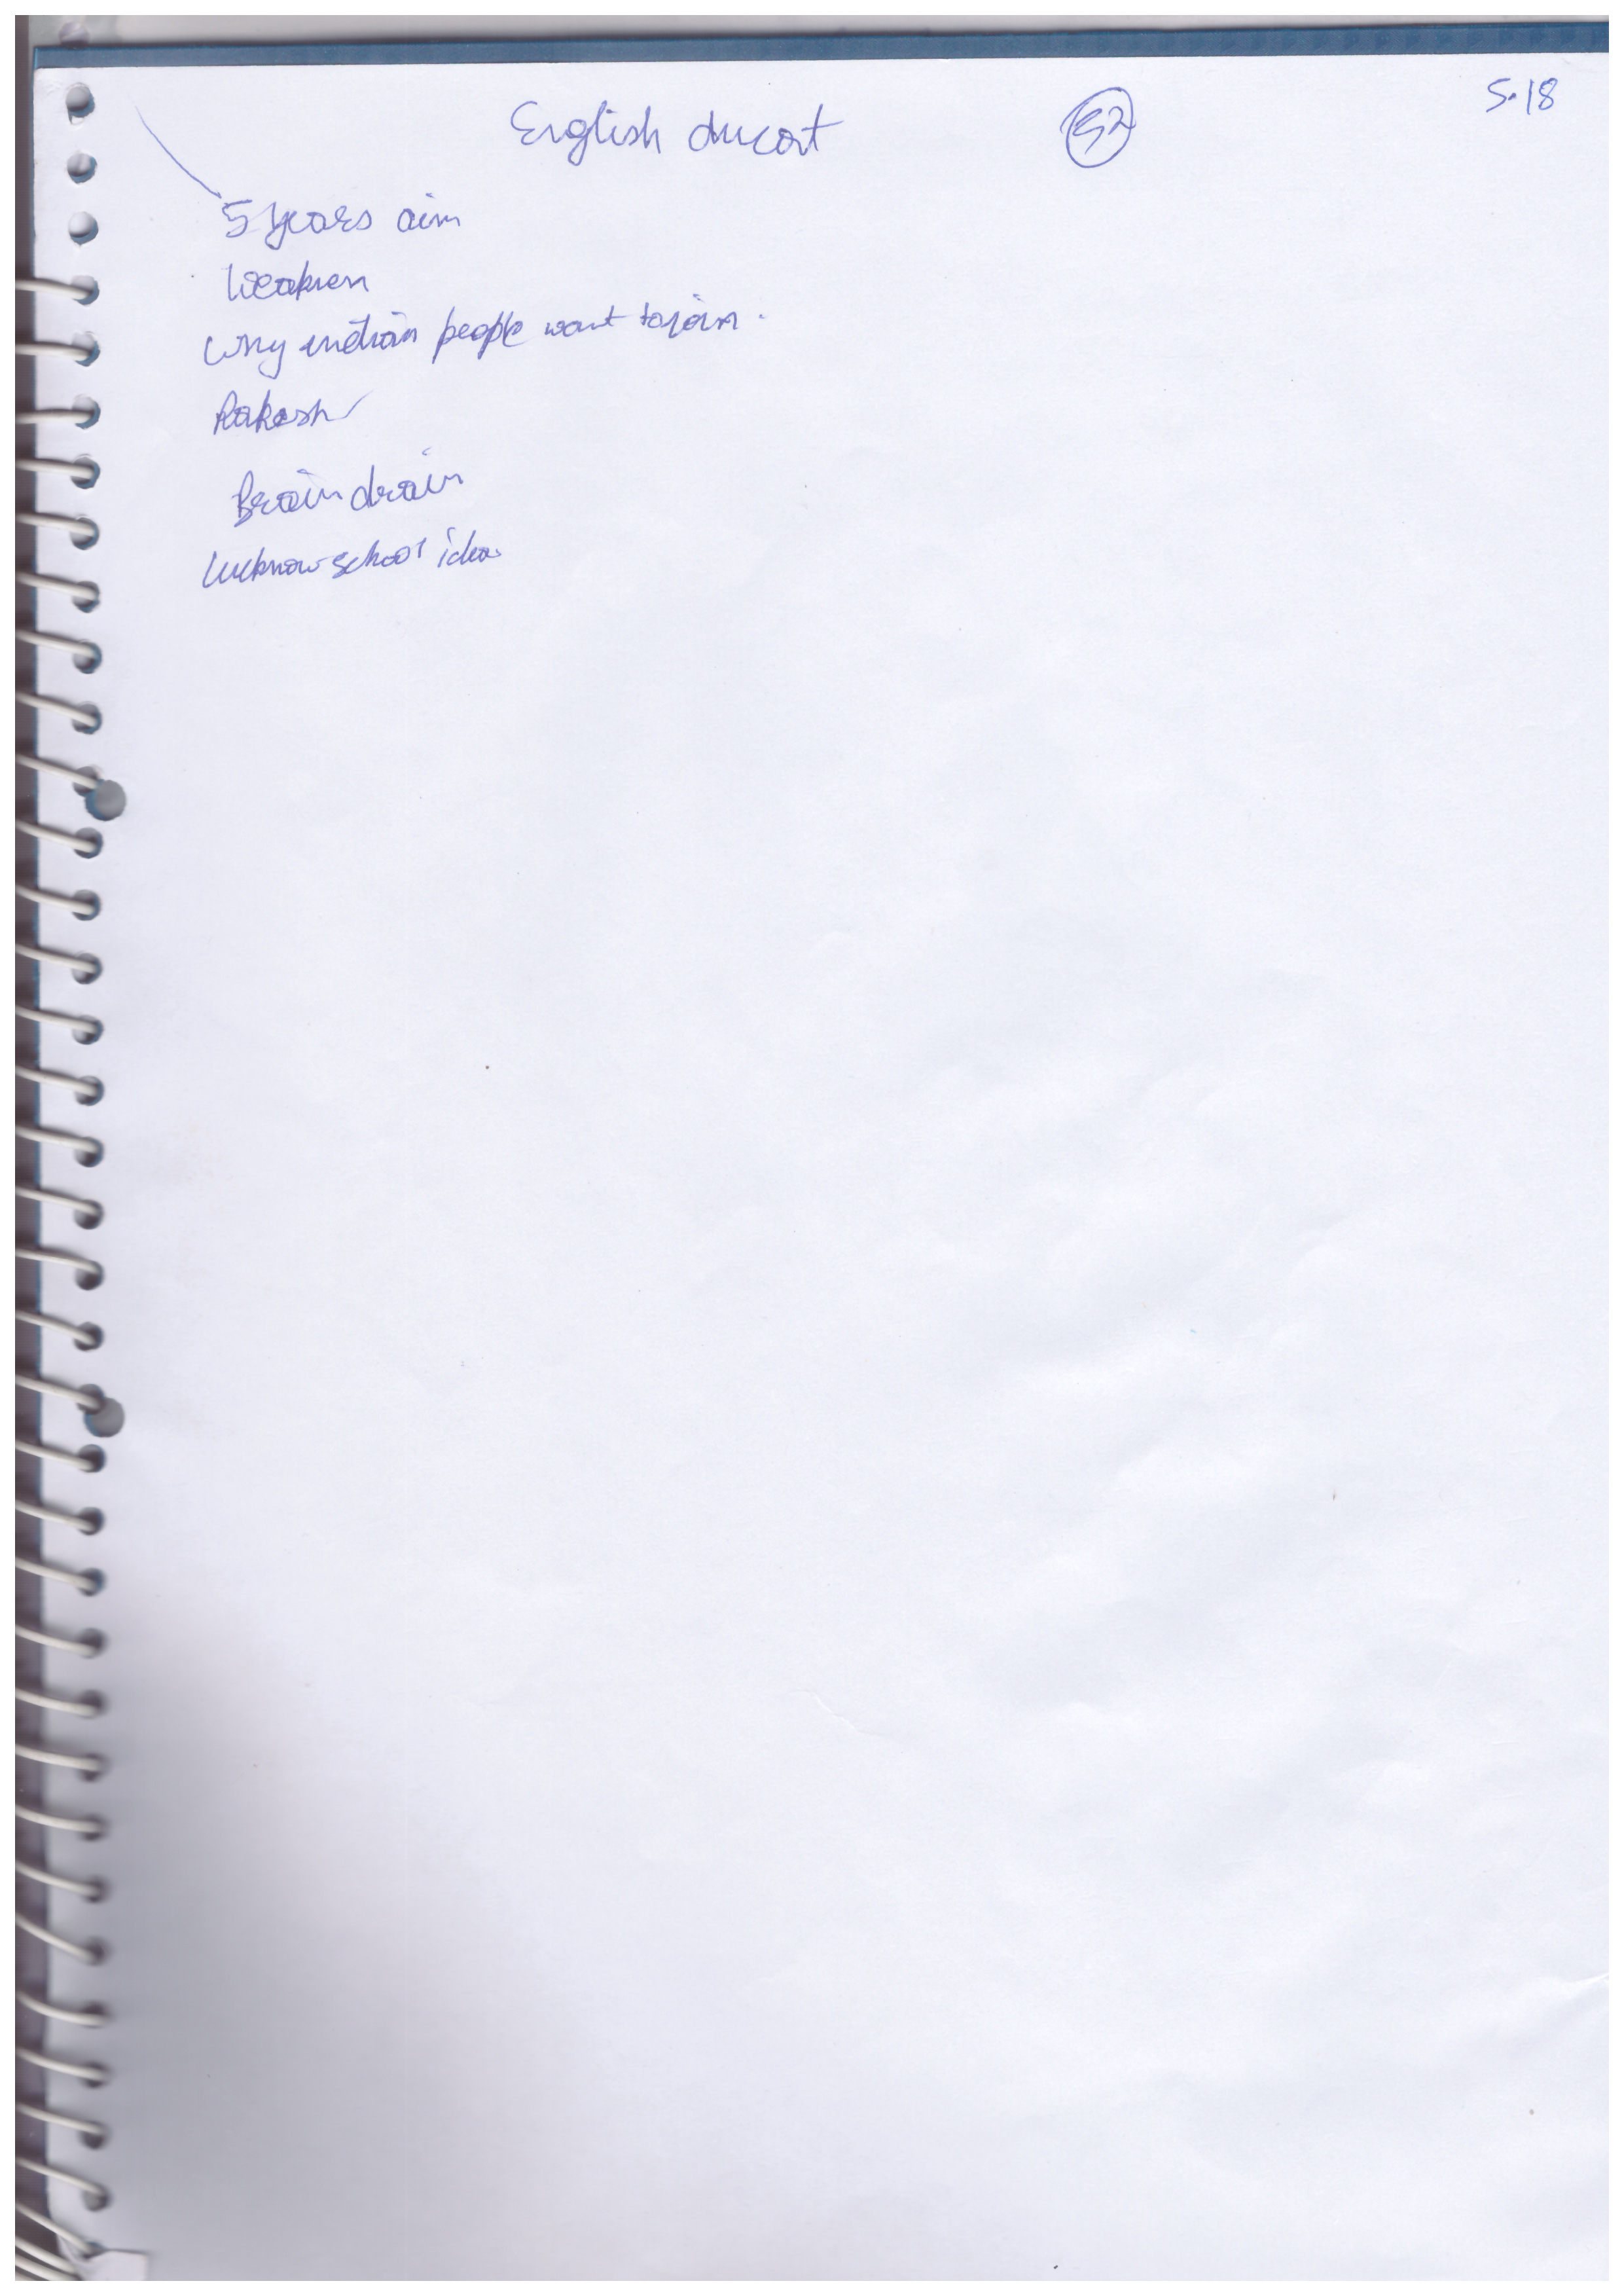 English 52 5.18
5 years aim
Weakness
Why indian people want to join.
Rakesh
Brain drain
lucknow school idea